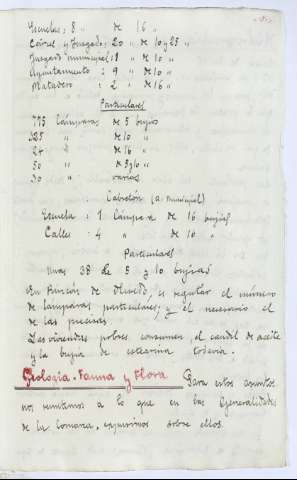 Escuelas: 8 " de 16 "
Cárcel y Juzgado: 20 " de 10 y 25 "
Juzgado municipal: 1 " de 10 "
Ayuntamiento: 9 " de 10 "
Matadero: 2 " de 16 "
Particulares
775 lámparas de 5 bujías
325 " de 10 "
24 " de 16 "
50 " de 5 y 10 "
30 " varios
Cabretón (a. municipal)
Escuela: 1 lámpara de 16 bujías
Calles: 4 " de 10 "
Particulares
Unas 38 de 5 y 10 bujías
En Rincón de Olivedo, es regular el número
de lámparas particulares, y el necesario el
de las precisas.
Las viviendas pobres consumen, el candil de aceite
y la bujía de estearina todavía.
Geología, Fauna y Flora Para estos asuntos
nos remitimos a lo que en las Generalidades
de la comarca, expusimos sobre ellos.